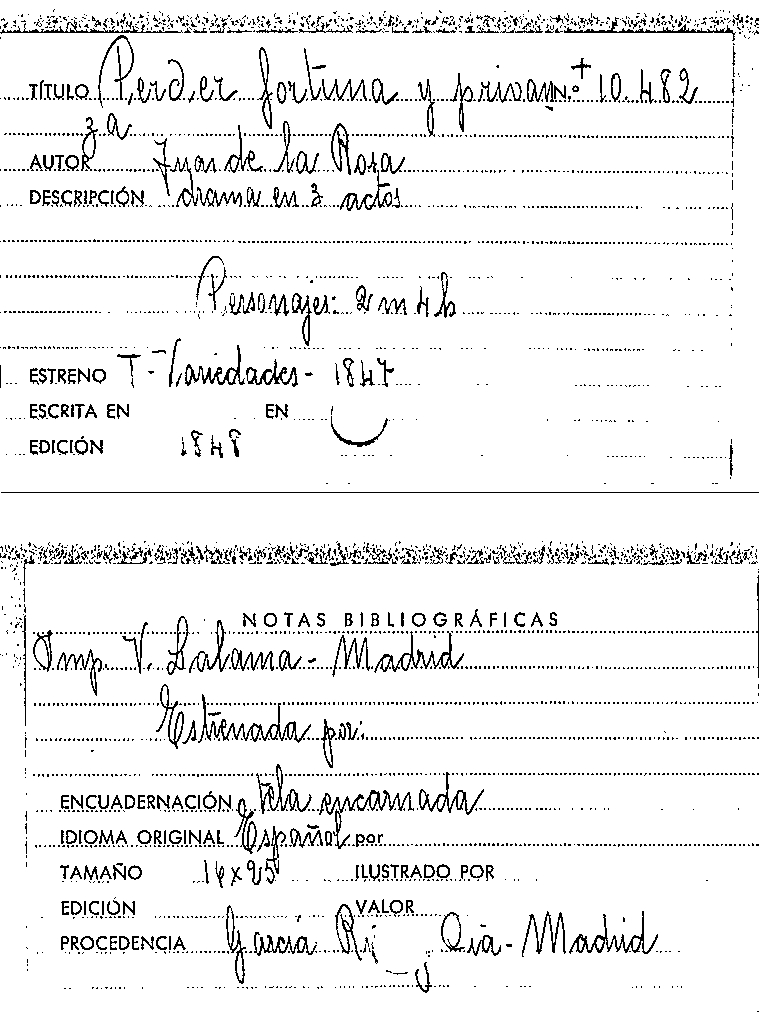 TÍTULO Perder fortuna y privan N.º + 10.482
za
AUTOR Juan de la Rosa
DESCRIPCIÓN drama en 3 actos
Personajes: 2 m 4 h
ESTRENO T - Variedades - 1847
ESCRITA EN EN
EDICIÓN 1848
NOTAS BIBLIOGRÁFICAS
Imp. V. Lalama - Madrid
Estrenada por:
ENCUADERNACIÓN tela encarnada
IDIOMA ORIGINAL Español por
TAMAÑO 16x25 ILUSTRADO POR
EDICIÓN VALOR
PROCEDENCIA García Cia - Madrid